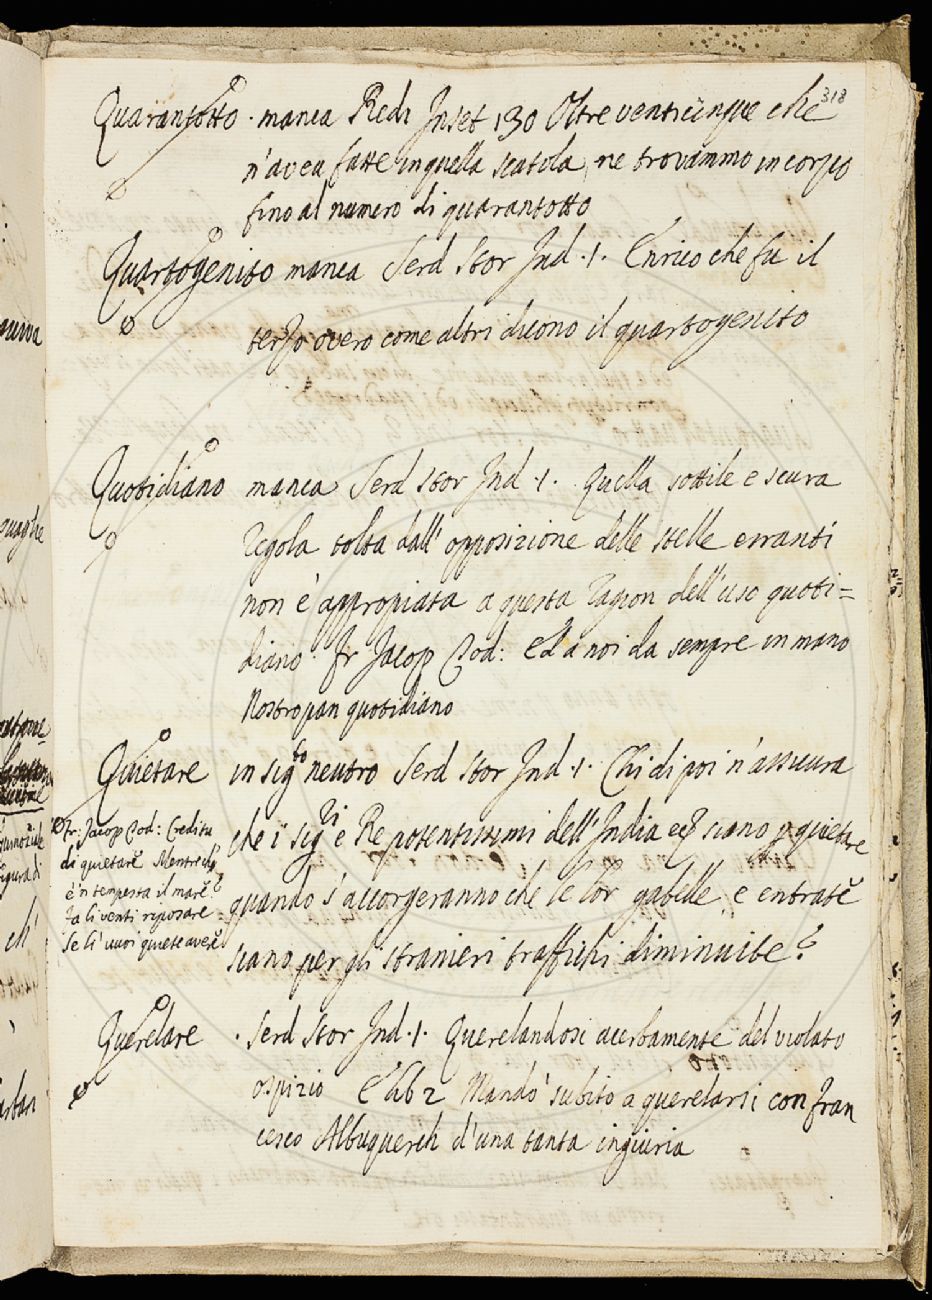 318
Quarantotto · manca Redi Inset 130 Oltre venticinque che
n'avea fatte in quella scatola, ne trovammo in corpo
fino al numero di quarantotto
Quartogenito manca Serd Stor Ind · 1 · Enrico che fu il
terzo overo come altri dicono il quartogenito
Quotidiano manca Serd Stor Ind · 1 · Quella sottile e scura
regola tolta dall' opposizione delle stelle erranti
non è appropiata a questa ragion dell'uso quoti=
diano · fr Jacop Tod: Ed a noi da sempre in mano
Nostro pan quotidiano
Quietare in sigto neutro Serd Stor Ind · 1 · Chi di poi n'assicura
che i sigri e Re potentissimi dell'India siano p quietare
quando s'accorgeranno che le lor gabelle, e entrate
siano per gli stranieri traffichi diminuite?
fr: Jacop Tod: Creditu
di quietare Mentre che
è'n tempesta il mare?
Fa li venti riposare
Se li vuoi quiete avere
Querelare · Serd Stor Ind · 1 · Querelandosi acerbamente del violato
ospizio E lib 2 Mandò subito a querelarsi con fran
cesco Albuquerch d'una tanta ingiuria